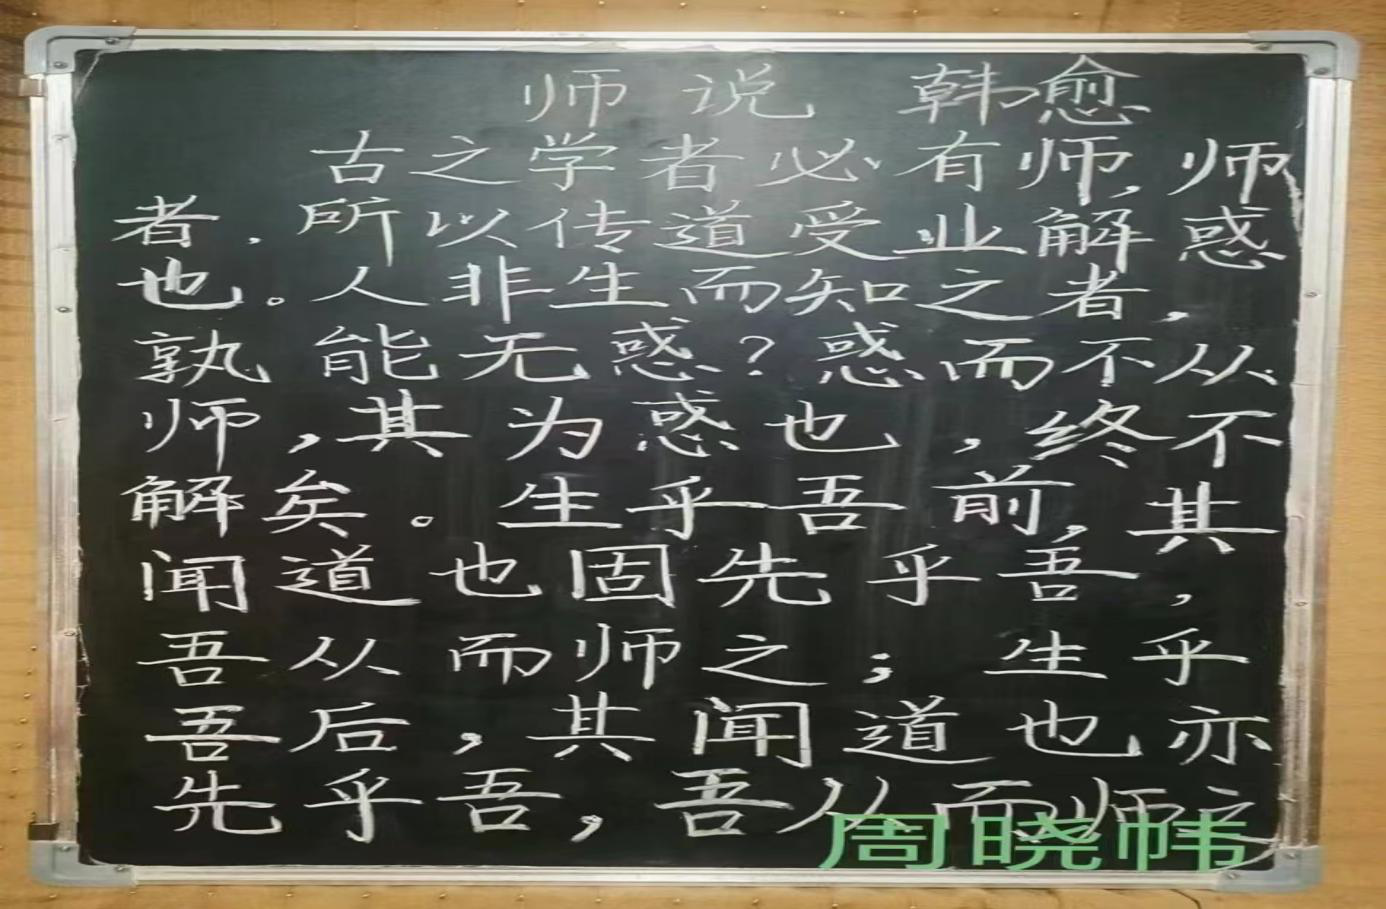 师说 韩愈
古之学者必有师,师
者,所以传道受业解惑
也。人非生而知之者,
孰能无惑?惑而不从
师,其为惑也,终不
解矣。生乎吾前,其
闻道也固先乎吾,
吾从而师之;生乎
吾后,其闻道也亦
先乎吾,吾从而师之
周晓帏